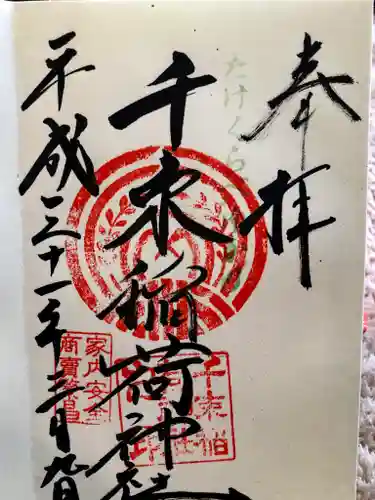 奉拝
たけくらべ
千束稲荷神社
平成三十一年三月九日
家内安全
商賣繁昌
千束稲